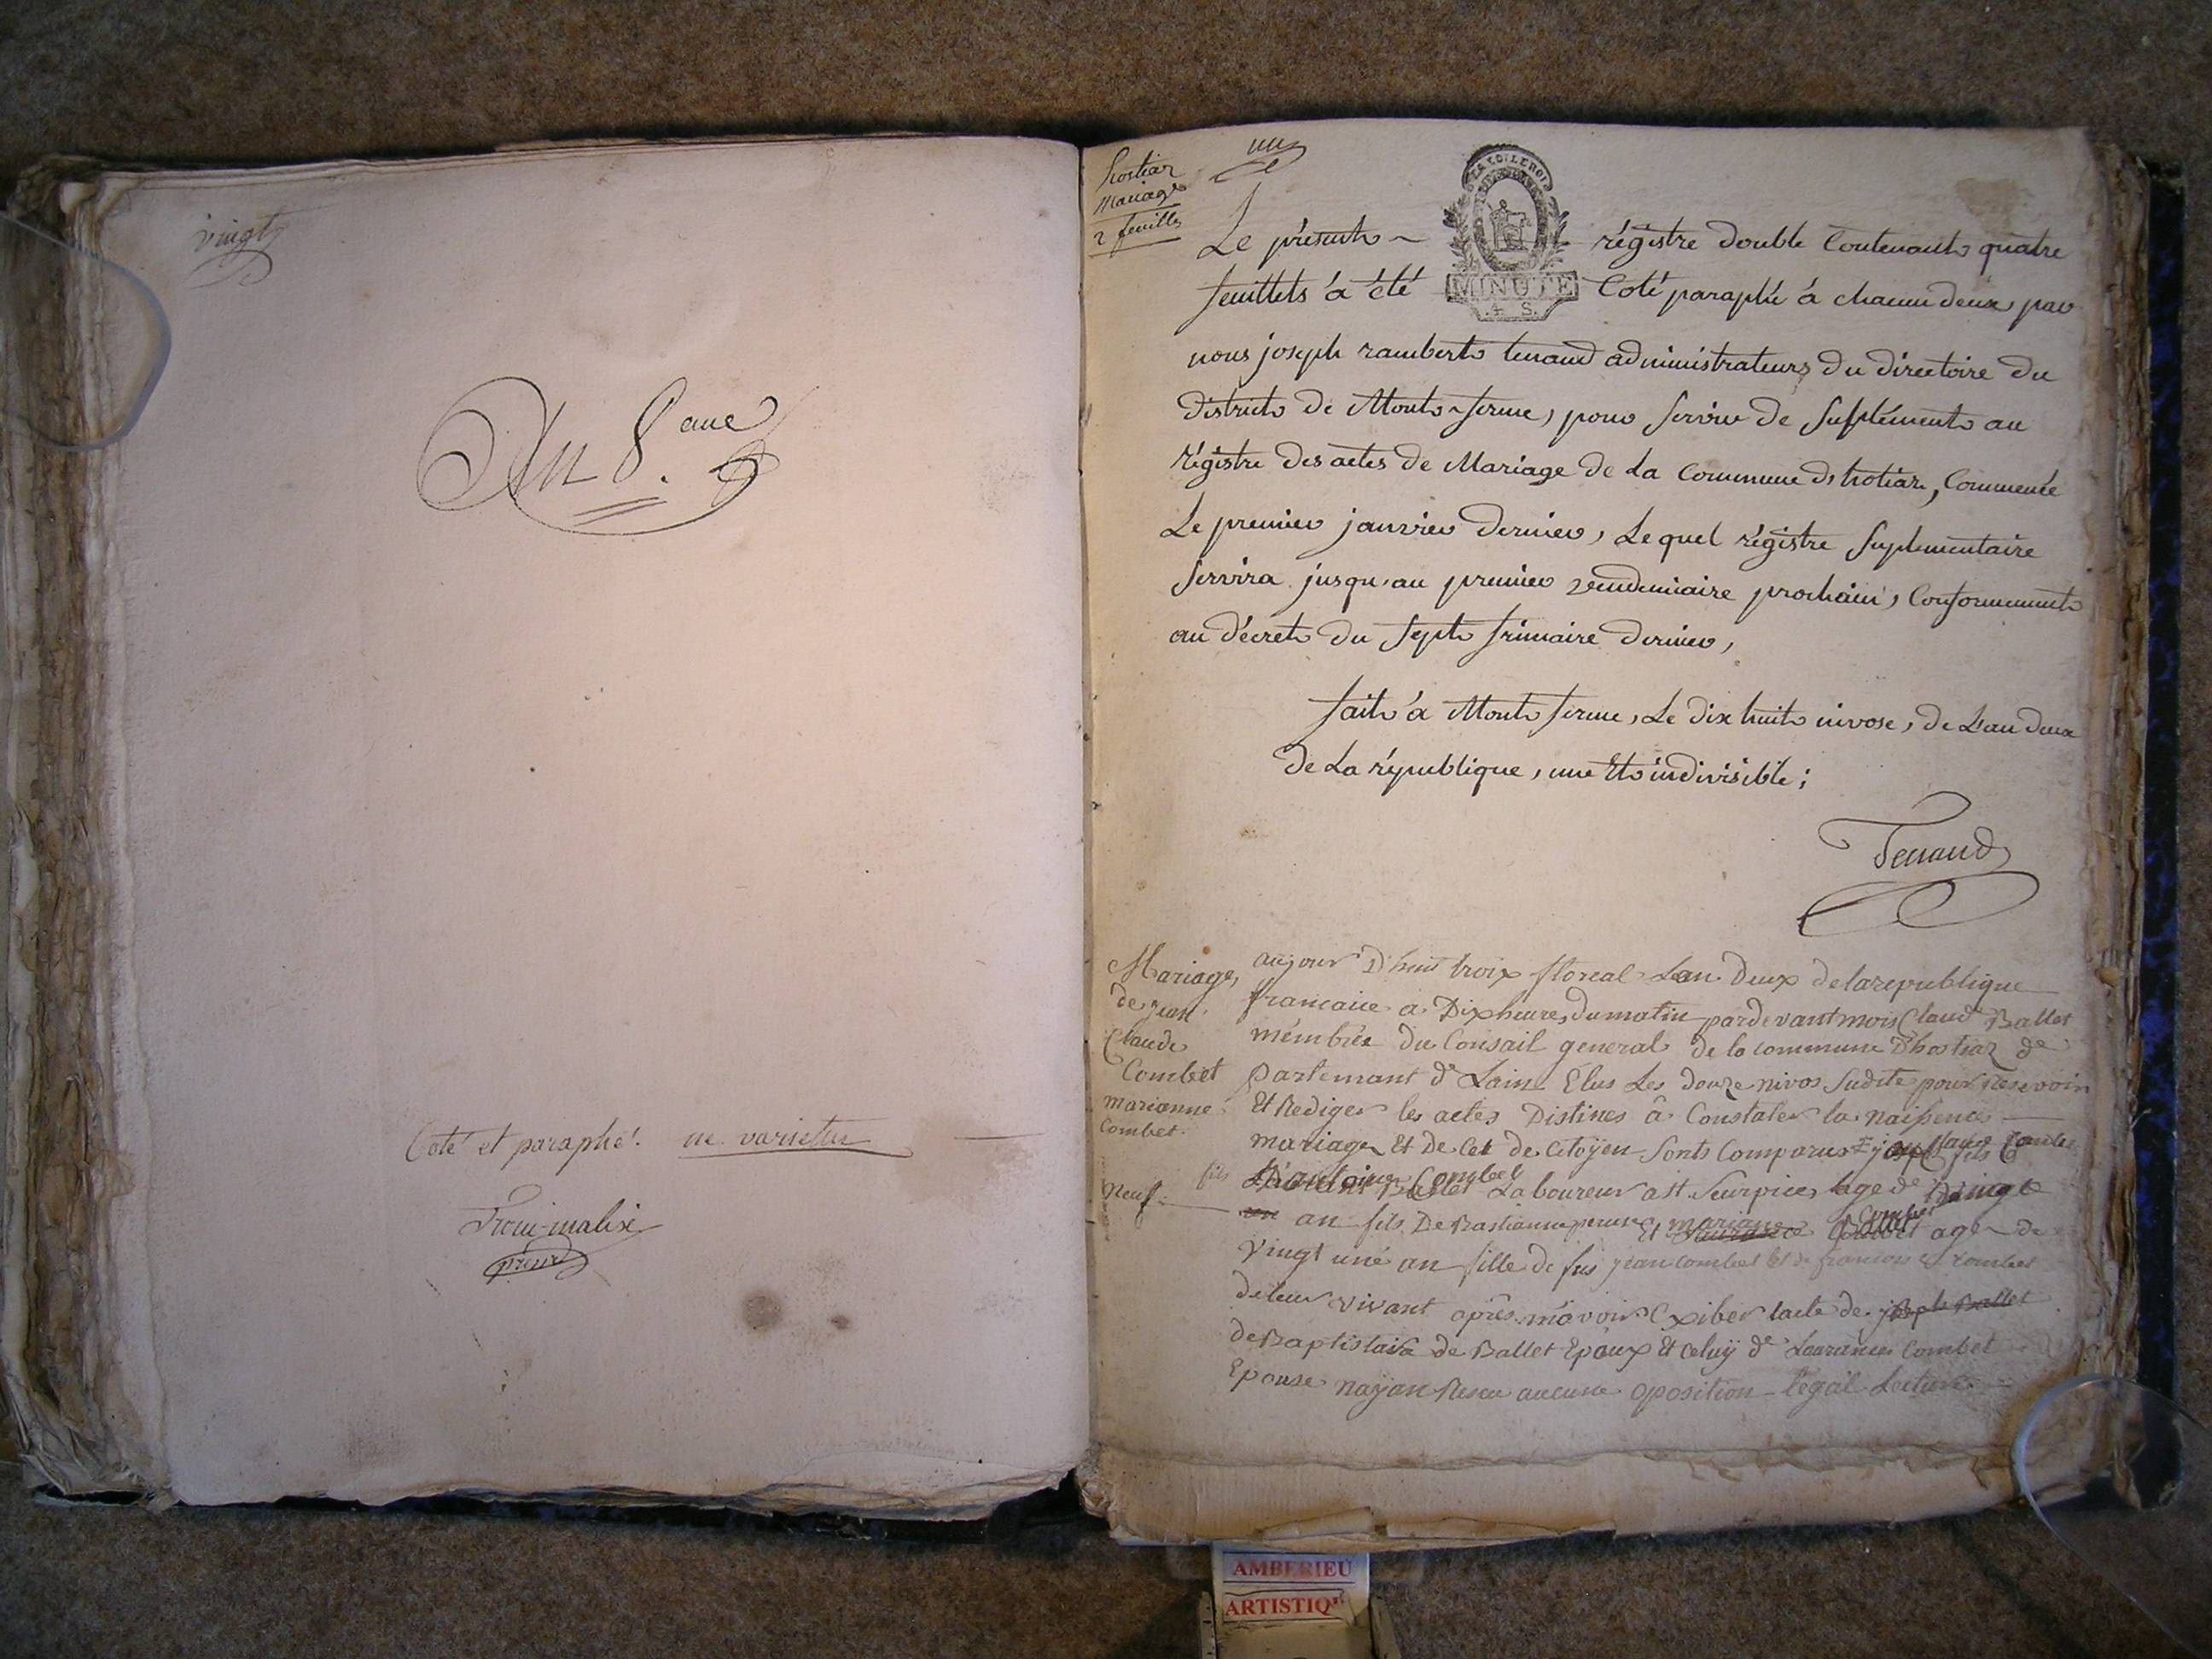 vingt
An 8.ane
Coté et paraphé. ne varietur
hostiaz
Mariage
2 feuilles
un
LA LOI LE ROI
MINUTE
4. S.
Le présent ~ régistre double Contenant quatre
feuillets à été Coté paraphé à chacun deux par
nous joseph rambert tenand administrateurs du directoire du
district de Mont-ferme, pour servir de suplément au
régistre des actes de Mariage de La Commune d'hotiaz, Commencé
Le premier janvier dernier, Le quel régistre suplementaire
servira jusqu'au premier vendemiaire prochain, Conformement
au décret du sept frimaire dernier,
fait à Mont ferme, Le dix huit nivose, de L'an deux
de La république, une Et indivisible;
Tenand
Mariage
de jean
Claude
Combet
marianne
Combet.
aujour D'huit troix floreal Lan Deux delarepublique
francaice a Dixheures Dumatin pardevantmois Claud Ballet
mémbre du Consail general de la commune D'hostiaz de
partemant de Lain Elus Les douze nivos Sudite pour Resevoir
Et Rediger les actes Distines â Constater la naissence
mariage Et De Cet de Citoÿen Sonts Comparus
fils D'antoine Combet Laboureur age de vingt
neuf
an fils De Bastianne et marianne Combet agé de
Vingt uné an fille de fus jean combet et de francois combet
deleur vivant aprês mavoir Exiber lacte de joseph Ballet
deBaptistaire de Ballet Epoux Et celuÿ de Laurance Combet
Epouse naÿan Resu aucune oposition légail Lecture
AMBERIEU
ARTISTIQ